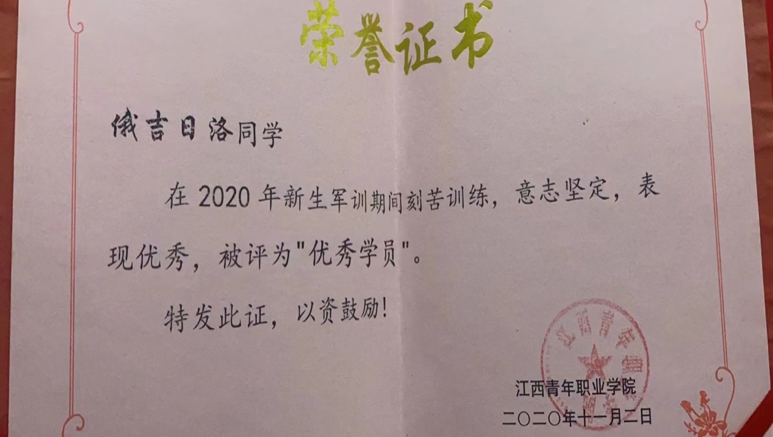 荣誉证书
俄吉日洛同学
在2020年新生军训期间刻苦训练，意志坚定，表
现优秀，被评为"优秀学员"。
特发此证，以资鼓励！
江西青年职
江西青年职业学院
二〇二〇年十一月二日